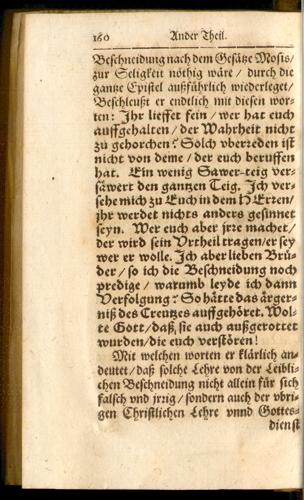 160 Ander Theil.
Beschneidung nach dem Gesätze Mosis/
zur Seligkeit nöthig wäre / durch die
gantze Epistel außführlich wiederleget/
Beschleußt er endtlich mit diesen wor-
ten: Ihr lieffet fein / wer hat euch
auffgehalten / der Wahrheit nicht
zu gehorchen? Solch vberreden ist
nicht von deme / der euch beruffen
hat. Ein wenig Sawer-teig ver-
säwert den gantzen Teig. Ich ver-
sehe mich zu Euch in dem HErren/
jhr werdet nichts anders gesinnet
seyn. Wer euch aber jrre machet/
der wird sein Vrtheil tragen/er sey
wer er wolle. Ich aber lieben Brü-
der / so ich die Beschneidung noch
predige / warumb leyde ich dann
Verfolgung? So hätte das ärger-
niß des Creutzes auffgehöret. Wol-
te Gott / daß sie auch außgerottet
wurden/die euch verstören!
Mit welchen worten er klärlich an-
deutet/daß solche Lehre von der Leibli-
chen Beschneidung nicht allein für sich
falsch vnd jrrig / sondern auch der vbri-
gen Christlichen Lehre vnnd Gottes-
dienst